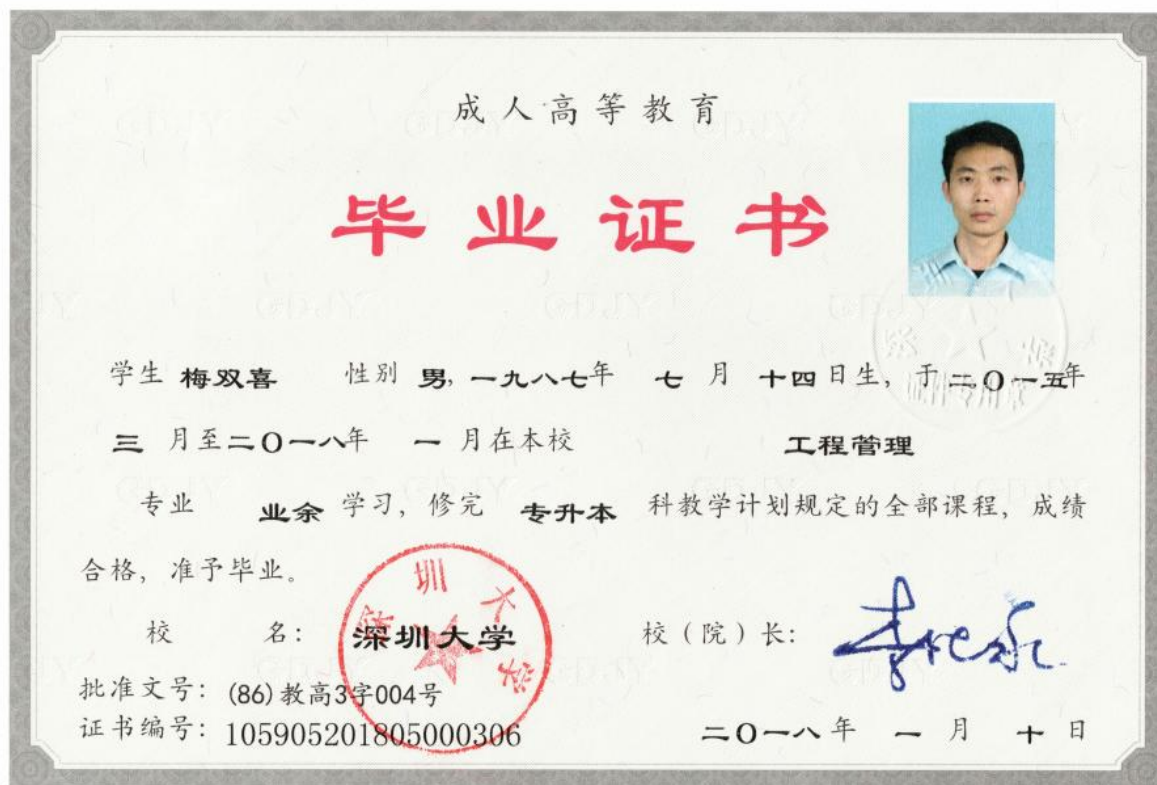 成人高等教育
毕业证书
学生 梅双喜 性别 男, 一九八七年 七 月 十四日生, 于二〇一五年
三 月至二〇一八年 一 月在本校 工程管理
专业 业余 学习, 修完 专升本 科教学计划规定的全部课程, 成绩
合格, 准予毕业。
校 名: 深圳大学 校（院）长:
深圳大学
批准文号: (86)教高3字004号
证书编号: 105905201805000306
二〇一八年 一 月 十 日